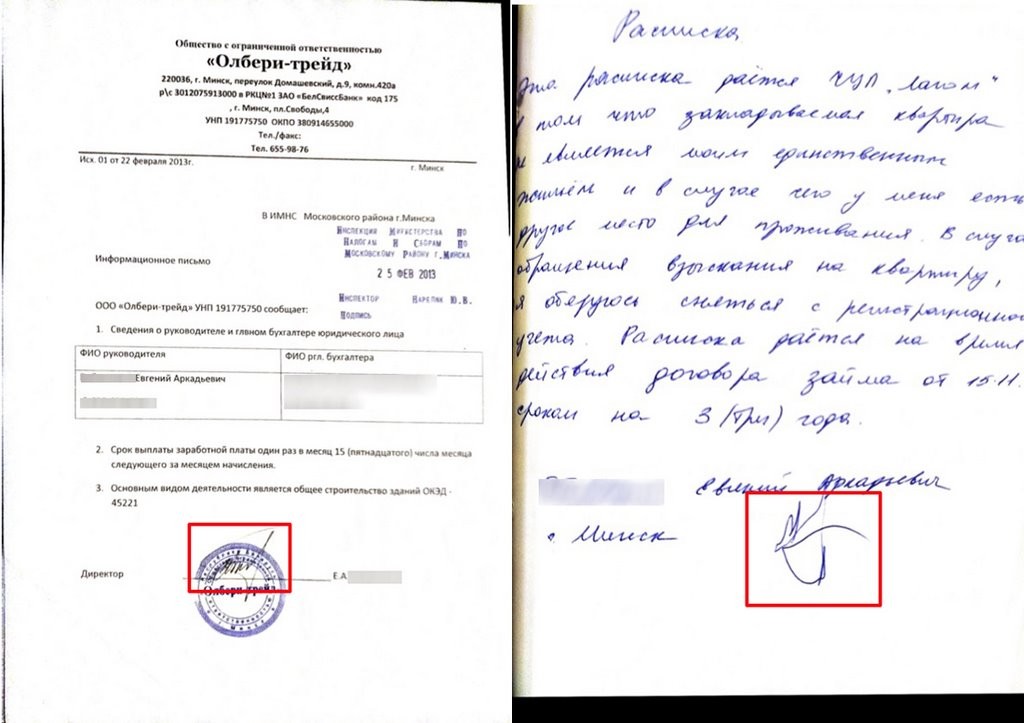 Общество с ограниченной ответственностью
«Олбери-трейд»
220036, г. Минск, переулок Домашевский, д.9, комн.420а
р\с 3012075913000 в РКЦ№1 ЗАО «БелСвиссБанк» код 175
, г. Минск, пл.Свободы,4
УНП 191775750 ОКПО 380914655000
Тел./факс:
Тел. 655-98-76
Исх. 01 от 22 февраля 2013г.
г. Минск
В ИМНС Московского района г.Минска
Инспекция Министерства по
налогам и сборам по
Московскому району г.Минска
25 ФЕВ 2013
Информационное письмо
Инспектор Нарепик Ю.В.
Подпись
ООО «Олбери-трейд» УНП 191775750 сообщает:
1. Сведения о руководителе и глвном бухгалтере юридического лица
ФИО руководителя
ФИО ргл. бухгалтера
Евгений Аркадьевич
2. Срок выплаты заработной платы один раз в месяц 15 (пятнадцатого) числа месяца
следующего за месяцем начисления.
3. Основным видом деятельности является общее строительство зданий ОКЭД -
45221
Директор
Е.А
Олбери-трейд
Минск
Расписка
Эта расписка даётся ЧУП „Лагом"
том что закладываемая квартира
не является моим единственным
жильём и в случае чего у меня есть
другое место для проживания. В случа
обращения взыскания на квартиру,
я обязуюсь сняться с регистрационного
учета. Расписка даётся на время
действия договора займа от 15.11.
сроком на 3 (три) года.
Евгений Аркадьевич
г. Минск